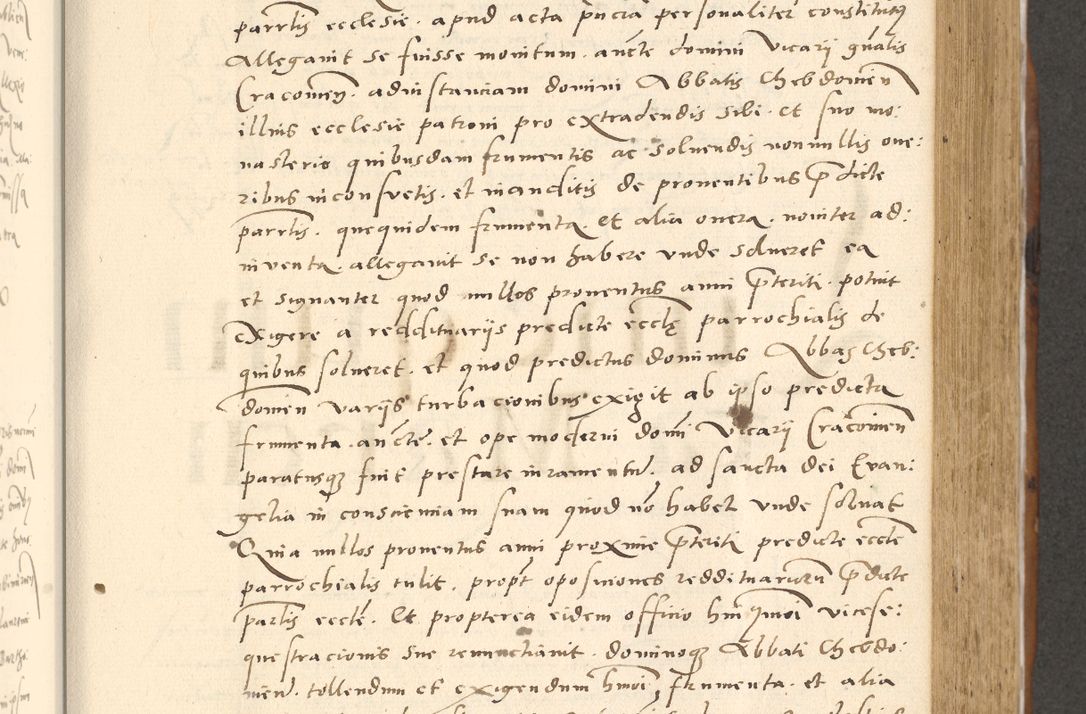 parrtis ecclesie . apud acta pncia personaliter constitutus
Allegavit se fuisse monitum . aucte domini Vicarii gnalis
Cracovien . ad instanciam domini Abbatis Chebdovien
illius ecclesie patroni pro extradendis sibi . et suo mo:
nasterio quibusdam frumentis ac solvendis nonnullis one:
ribus inconsvetis . et inauditis de proventibus pdicte
parrtis . que quidem frumenta et alia onera . noviter ad:
inventa . allegavit se non habere unde solveret ea
et signanter quod nullos proventus anni pteriti . potuit
exigere a reddituariis predicte eccle parrochialis de
quibus solveret . et quod predictus dominus Abbas Cheb:
dovien variis turbacionibus exigit ab ipso predicta
frumenta . aucte . et ope moderni domi Vicarii Cracovien
paratusque fuit prestare iuramentu . ad sancta dei Evan:
gelia in conscienciam suam quod no habet unde solvat
Quia nullos proventus anni proxime pteriti predicte eccle
parrochialis tulit . propt oposiciones reddituariorum pdicte
partis eccle . Et propterea eidem officio hmoi vicese:
questracionis sue renunctiavit . dominoque Abbati Chebdo:
vien . tollendum et exigendum hmoi frumenta . et alia